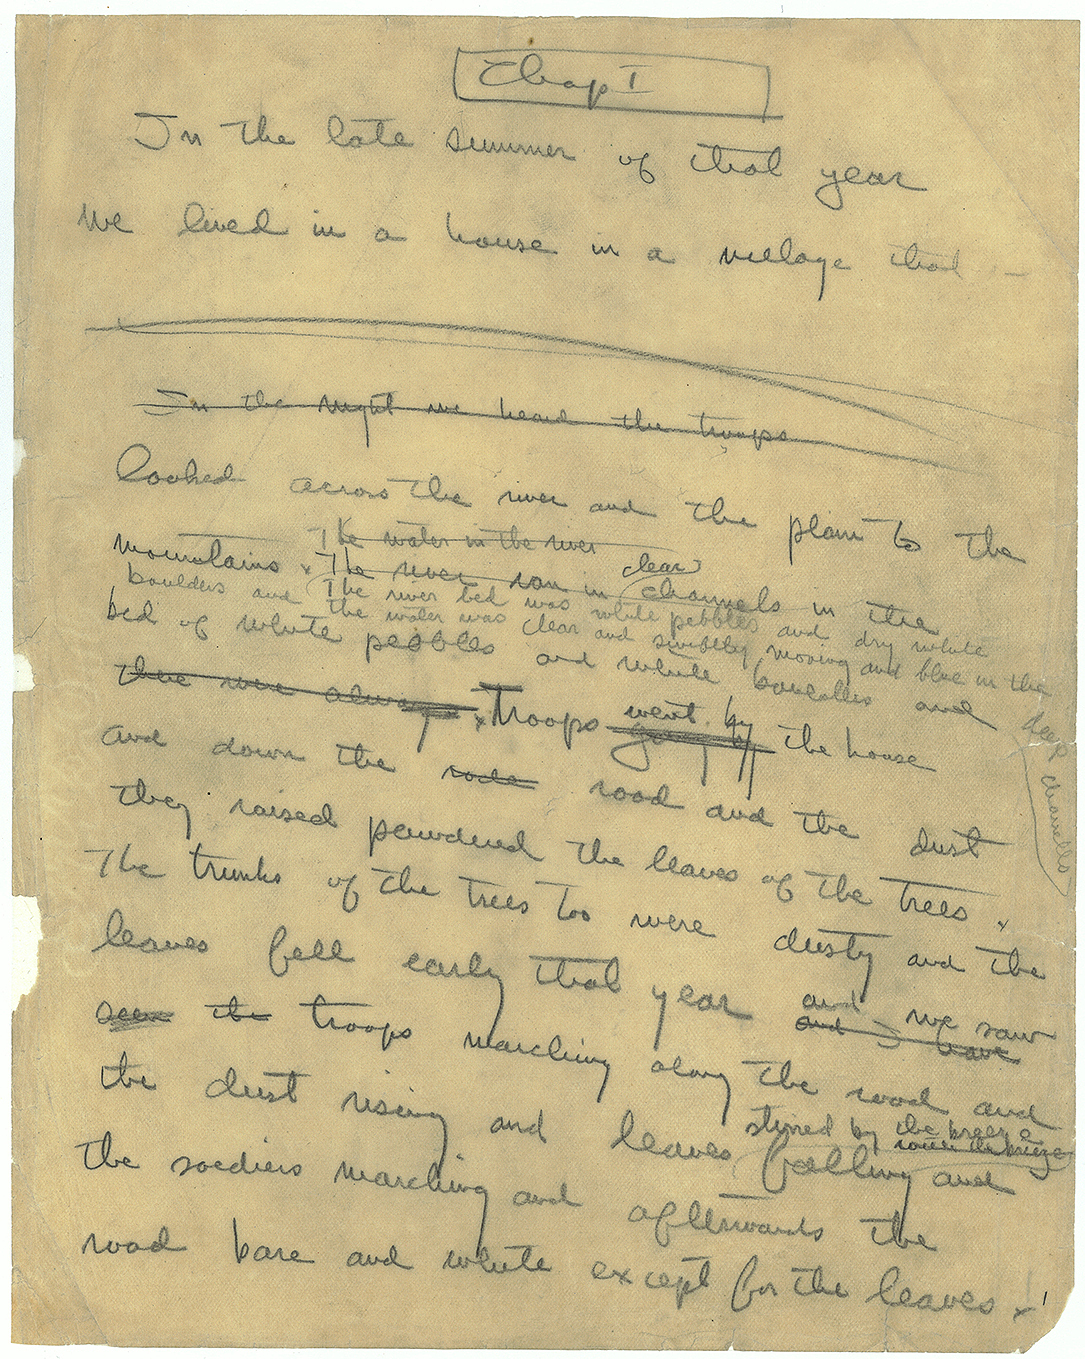 Chap I
In the late summer of that year
we lived in a house in a village that
In the night we heard the troops
looked across the river and the plain to the
The water in the river
mountains. The river ran in clear channels in the
boulders and The river bed was white pebbles and dry white
the water was clear and swiftly moving and blue in the
deep channels
bed of white pebbles and white boulders and
there were always Troops went by going by the house
and down the rode road and the dust
they raised powdered the leaves of the trees.
The trunks of the trees too were dusty and the
leaves fell early that year and we saw
and have
seen the troops marching along the road and
the dust rising and leaves stirred by the breeze falling and
the breeze
the soldiers marching and afterwards the
road bare and white except for the leaves.